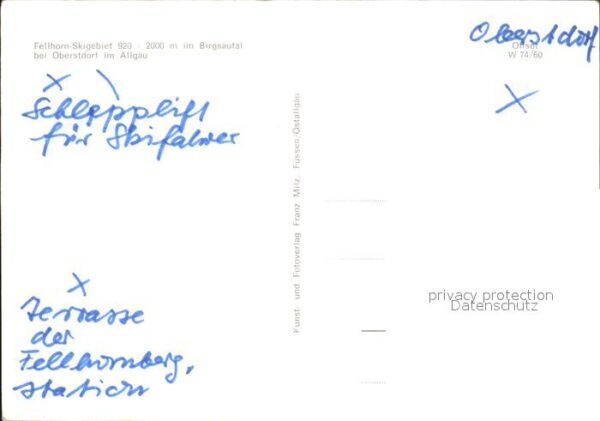 Fellhorn-Skigebiet 920 - 2000 m im Birgsautal
bei Oberstdorf im Allgäu
x )
Schlepplift
für Skifahrer
x
Terrasse
der
Fellhornberg,
station
Kunst- und Fotoverlag Franz Milz, Füssen/Ostallgäu
Oberstdorf
Offset
W 74/60
x
privacy protection
Datenschutz